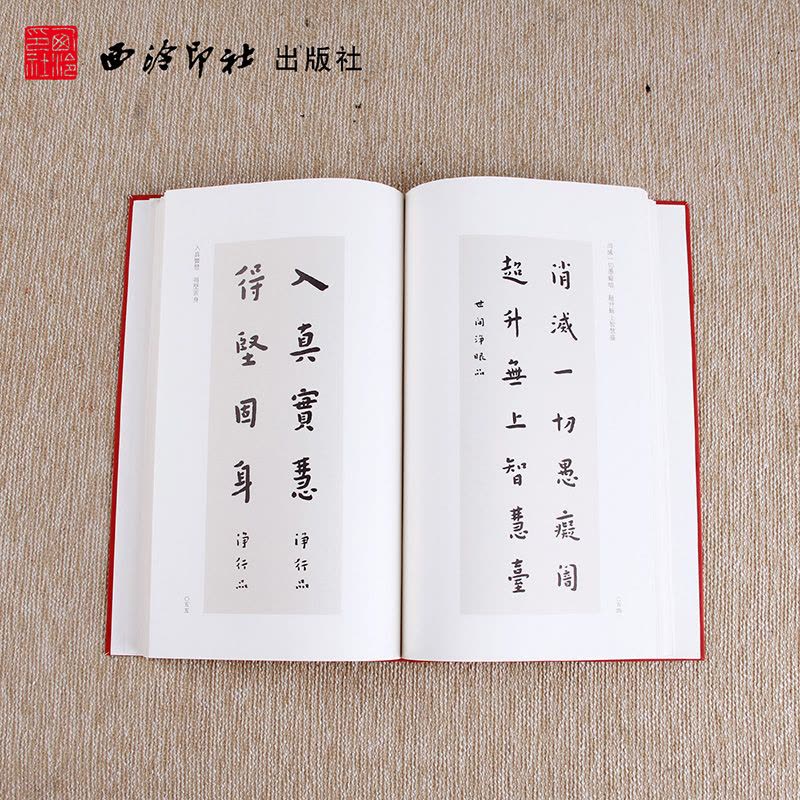 西泠印社
西泠印社 出版社
消滅一切愚癡闇 超升無上智慧臺
消滅一切愚癡闇
超升無上智慧臺
世间淨眼品
〇五四
入真實慧
淨行品
得堅固身
淨行品
入真實慧 得堅固身
〇五五